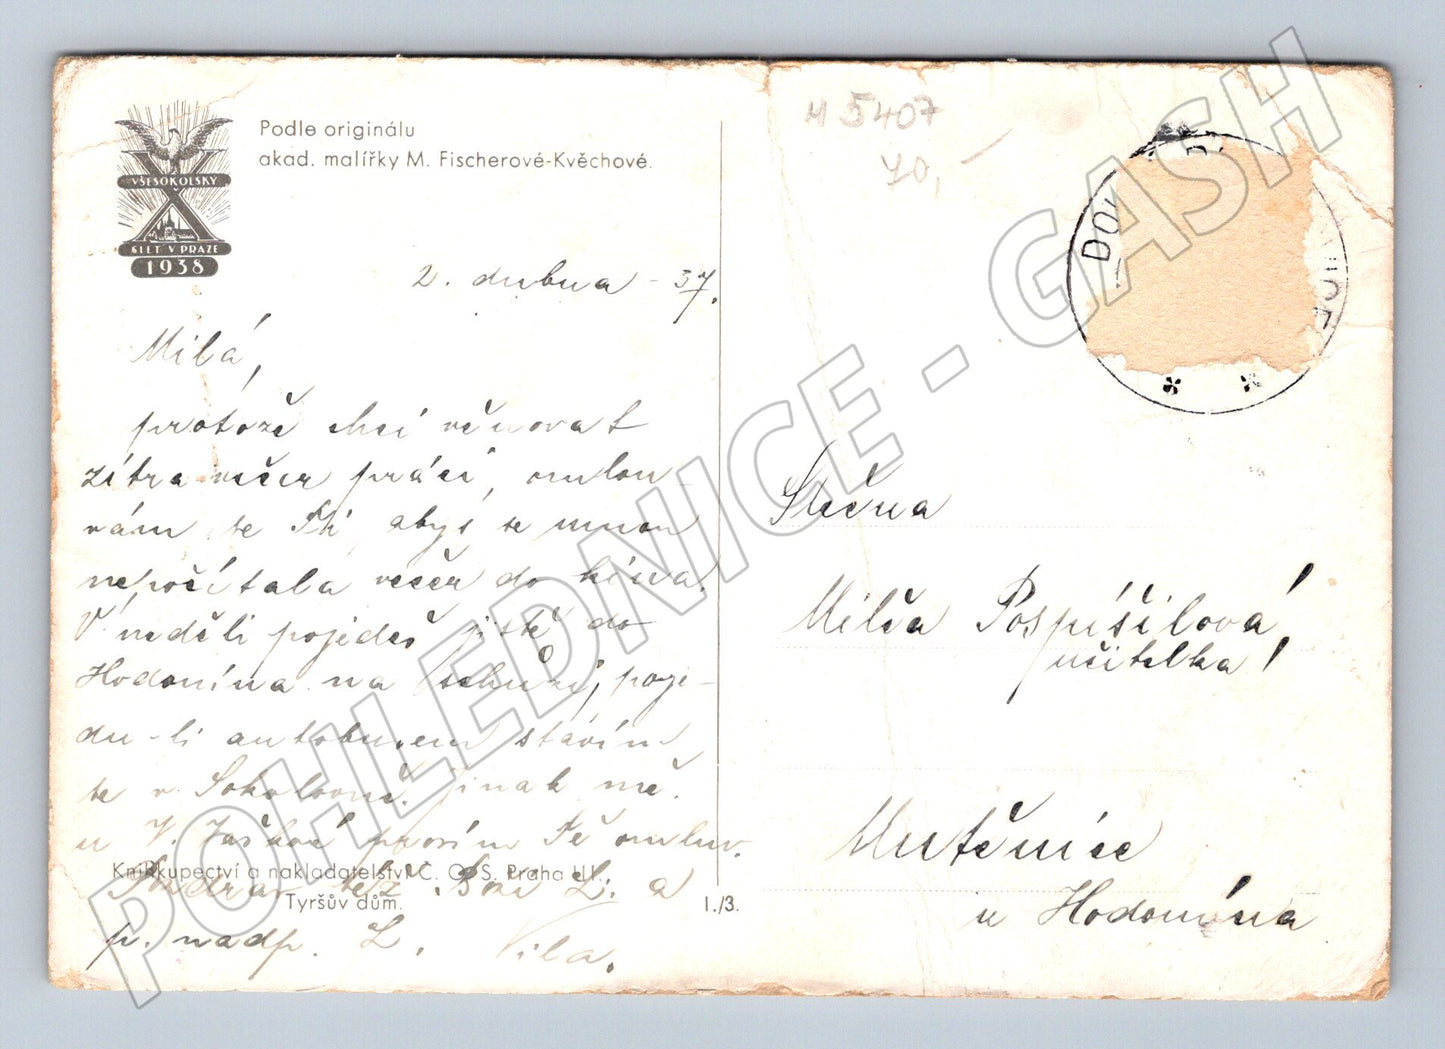 VŠESOKOLSKÝ
X
SLET V PRAZE
1938
Podle originálu
akad. malířky M. Fischerové-Kvěchové.
M 5407
70,
DOL
2. dubna - 37.
Milá,
protože chci věnovat
zítra večer práci, omlou-
vám se Ti, abys se mnou
nepočítala večer do kina.
V neděli pojedeš jistě do
Hodonína na schůzi, poje-
du-li autobusem stavím
se v Sokolovně. jinak mě
u V. prosím Tě omluv.
Nazdar též L. a
p. nadp. L. Vila.
Knihkupectví a nakladatelství Č. O. S. Praha III.
Tyršův dům.
I./3.
Slečna
Milča Pospíšilová,
učitelka!
Mutěnice
u Hodonína
POHLEDNICE - GASH